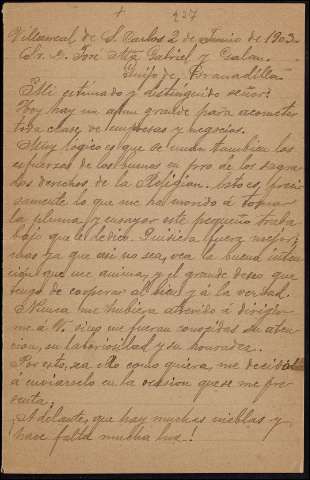 + 237
Villarreal de S. Carlos 2 de Junio de 1903.
Sr. D. José Mª Gabriel y Galan.
Guijo de Granadilla
Mi estimado y distinguido señor:
Hoy hay un afan grande para acometer
toda clase de empresas y negocios.
Muy lógico es que se unan tambien los
esfuerzos de los buenos en pro de los sagra
dos derechos de la Religion. Esto es preci
samente lo que me ha movido á tomar
la pluma y ensayar este pequeño traba
bajo que le dedico. Quisiera fuera mejor;
mas ya que asi no sea, vea la buena inten
cion que me anima, y el grande deseo que
tengo de cooperar al bien y á la verdad.
Nunca me hubiera atrevido á dirigir
me á V. si no me fueran conocidas su aten
cion, su laboriosidad y su honradez.
Por esto, sea ello como quiera, me decidi
á enviarselo en la ocasion que se me pre
senta.
¡Adelante, que hay muchas nieblas y
hace falta mucha luz!